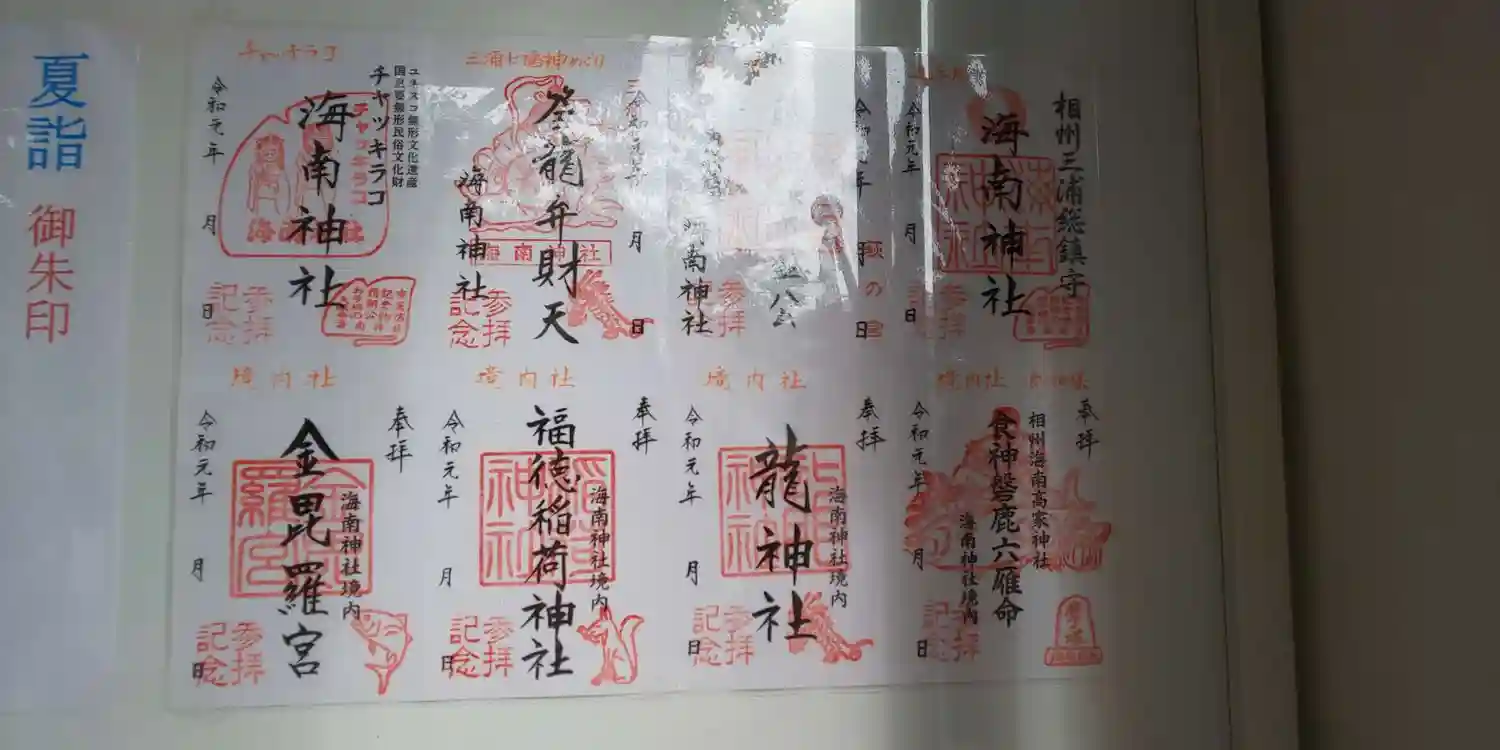 夏詣
御朱印
相州三浦総鎮守
海南神社
令和元年
月
日
令和元年
月
日
海南神社
参拝
記念
三浦七福神めぐり
令和元年
月
日
癸龍弁財天
海南神社
海南神社
参拝
記念
チャッキラコ
ユネスコ無形文化遺産
国重要無形民俗文化財
チャッキラコ
海南神社
チャッキラコ
令和元年
月
日
参拝
記念
境内社
奉拝
相州海南高家神社
食神磐鹿六雁命
海南神社境内
令和元年
月
日
参拝
記念
境内社
奉拝
海南神社境内
龍神社
令和元年
月
日
参拝
記念
境内社
奉拝
海南神社境内
福徳稲荷神社
令和元年
月
日
参拝
記念
境内社
奉拝
海南神社境内
金毘羅宮
令和元年
月
日
参拝
記念